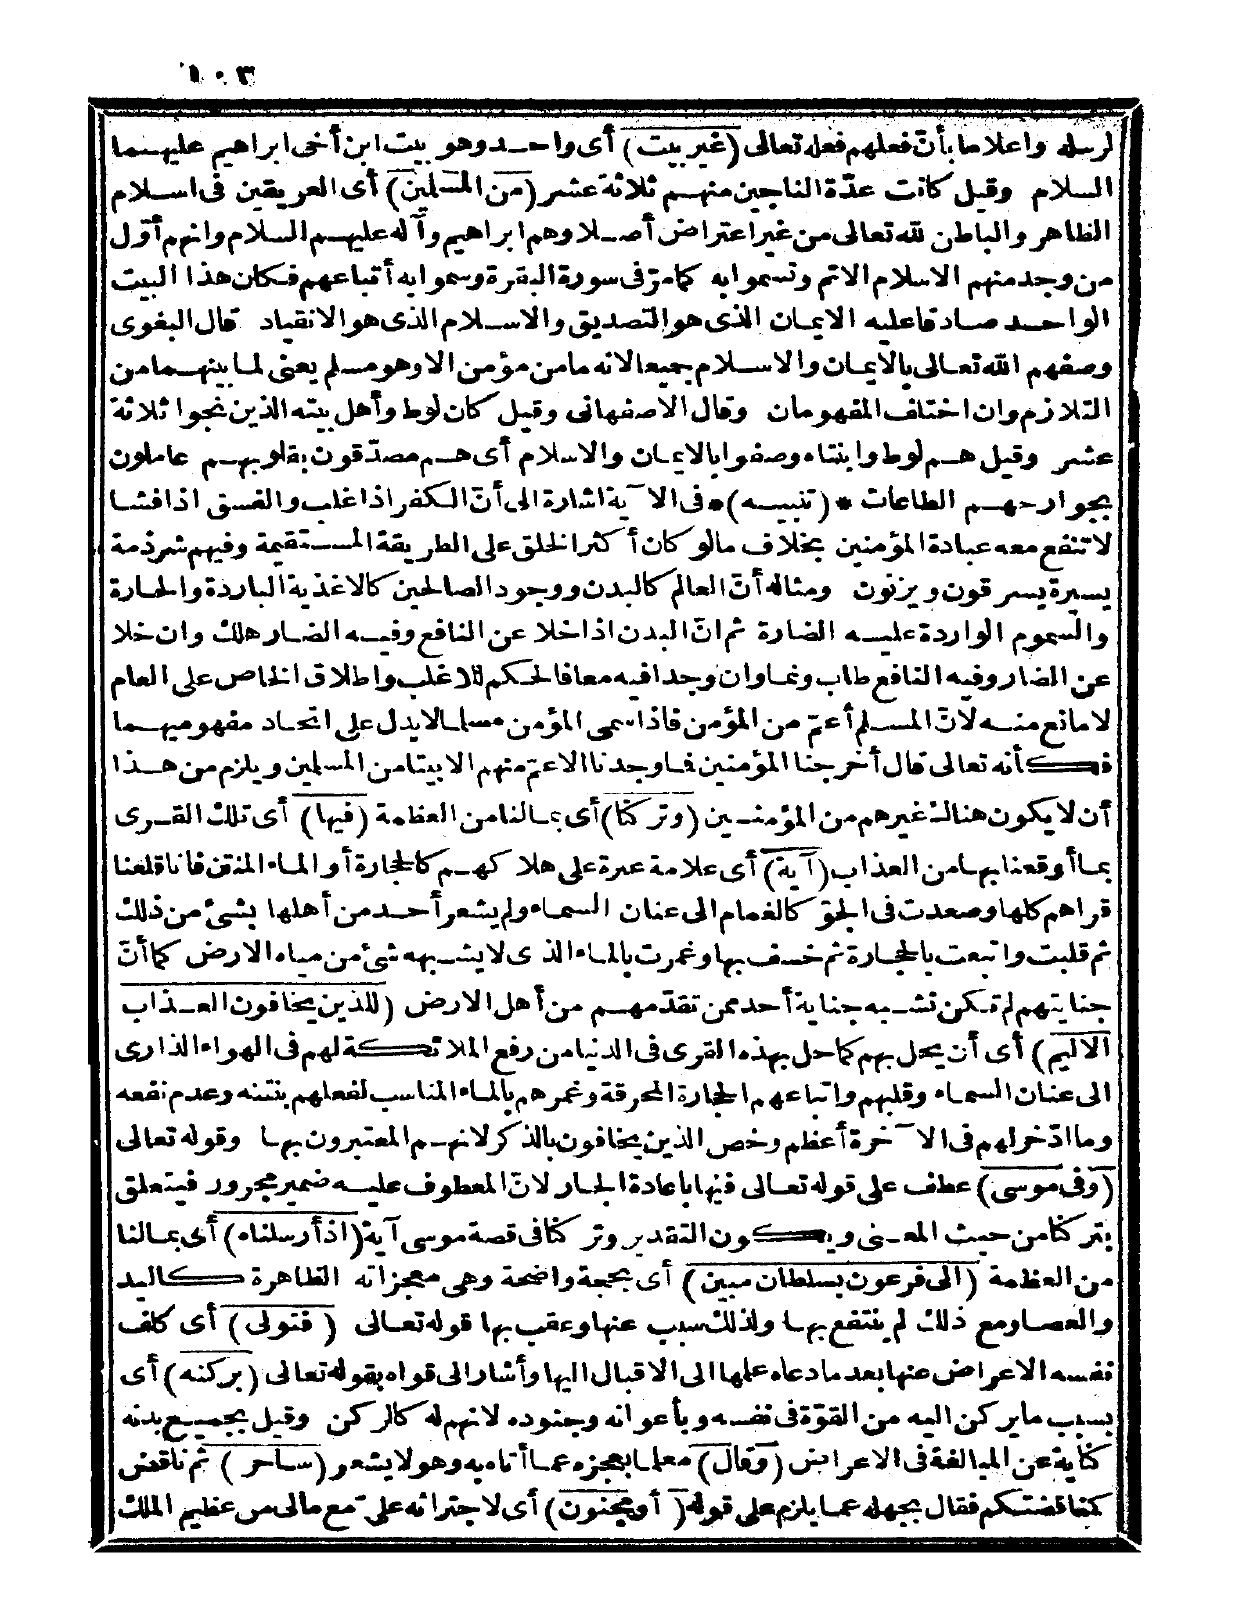 ١٠٣
لرسله واعلاما بأنّ فعلهم فعله تعالى (غير بيت) أى واحد وهو بيت ابن أخى ابراهيم عليهما
السلام وقيل كانت عدّة الناجين منهم ثلاثة عشر (من المسلمين) أى العريقين فى اسلام
الظاهر والباطن لله تعالى من غير اعتراض أصلا وهم ابراهيم وآله عليهم السلام وانهم أوّل
من وجد منهم الاسلام الاتم وتسموا به كما مرّ فى سورة البقرة وسموا به أتباعهم فكان هذا البيت
الواحد صادقا عليه الايمان الذى هو التصديق والاسلام الذى هو الانقياد قال البغوى
وصفهم الله تعالى بالايمان والاسلام جميعا لانه ما من مؤمن الا وهو مسلم يعنى لما بينهما من
التلازم وان اختلف المفهومان وقال الاصفهانى وقيل كان لوط وأهل بيته الذين نجوا ثلاثة
عشر وقيل هم لوط وابنتاه وصفوا بالايمان والاسلام أى هم مصدّقون بقلوبهم عاملون
بجوارحهم الطاعات * (تنبيه) * فى الآية اشارة الى أنّ الكفر اذا غلب والفسق اذا فشا
لا تنفع معه عبادة المؤمنين بخلاف ما لو كان أكثر الخلق على الطريقة المستقيمة وفيهم شرذمة
يسيرة يسرقون ويزنون ومثاله أنّ العالم كالبدن ووجود الصالحين كالاغذية الباردة والحارة
والسموم الواردة عليه الضارة ثم انّ البدن اذا خلا عن النافع وفيه الضار هلك وان خلا
عن الضار وفيه النافع طاب ونما وان وجدا فيه معا فالحكم للاغلب واطلاق الخاص على العام
لا مانع منه لانّ المسلم أعمّ من المؤمن فاذا سمى المؤمن مسلما لا يدل على اتحاد مفهوميهما
فكأنه تعالى قال أخرجنا المؤمنين فما وجدنا الاعمّ منهم الا بيتا من المسلمين ويلزم من هذا
أن لا يكون هناك غيرهم من المؤمنين (وتركنا) أى بما لنا من العظمة (فيها) أى تلك القرى
بما أوقعنا بها من العذاب (آية) أى علامة عبرة على هلاكهم كالحجارة أو الماء المنتن فانا قلعنا
قراهم كلها وصعدت فى الجوّ كالغمام الى عنان السماء ولم يشعر أحد من أهلها بشئ من ذلك
ثم قلبت واتبعت بالحجارة ثم خسف بها وغمرت بالماء الذى لا يشبهه شئ من مياه الارض كما أنّ
جنايتهم لم تكن تشبه جناية أحد ممن تقدّمهم من أهل الارض (للذين يخافون العذاب
الاليم) أى أن يحل بهم كما حل بهذه القرى فى الدنيا من رفع الملائكة لهم فى الهواء الذارى
الى عنان السماء وقلبهم واتباعهم الحجارة المحرقة وغمرهم بالماء المناسب لفعلهم بنتنه وعدم نفعه
وما ادّخر لهم فى الآخرة أعظم وخص الذين يخافون بالذكر لانهم المعتبرون بها وقوله تعالى
(وفى موسى) عطف على قوله تعالى فيها باعادة الجار لانّ المعطوف عليه ضمير مجرور فيتعلق
بتركنا من حيث المعنى ويكون التقدير وتركنا فى قصة موسى آية (اذ أرسلناه) أى بما لنا
من العظمة (الى فرعون بسلطان مبين) أى بحجة واضحة وهى معجزاته الظاهرة كاليد
والعصا ومع ذلك لم ينتفع بها ولذلك سبب عنها وعقب بها قوله تعالى (فتولى) أى كلف
نفسه الاعراض عنها بعد ما دعاه علمها الى الاقبال اليها وأشار الى قواه بقوله تعالى (بركنه) أى
بسبب ما يركن اليه من القوّة فى نفسه وبأعوانه وجنوده لانهم له كالركن وقيل بجميع بدنه
كناية عن المبالغة فى الاعراض (وقال) معلما بعجزه عما أتاه به وهو لا يشعر (ساحر) ثم ناقض
كمناقضتكم فقال بجهله عما يلزم على قوله (أو مجنون) أى لاجترائه علىّ مع مالى من عظيم الملك